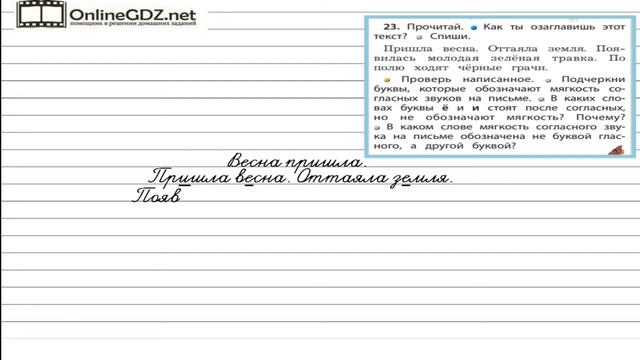 OnlineGDZ.net
помощник в решении домашних заданий
23. Прочитай. Как ты озаглавишь этот
текст? Спиши.
Пришла весна. Оттаяла земля. Поя-
вилась молодая зелёная травка. По
полю ходят чёрные грачи.
Проверь написанное. Подчеркни
буквы, которые обозначают мягкость со-
гласных звуков на письме. В каких сло-
вах буквы ё и и стоят после согласных,
но не обозначают мягкость? Почему?
В каком слове мягкость согласного зву-
ка на письме обозначена не буквой глас-
ного, а другой буквой?
Весна пришла.
Пришла весна. Оттаяла земля.
Появ